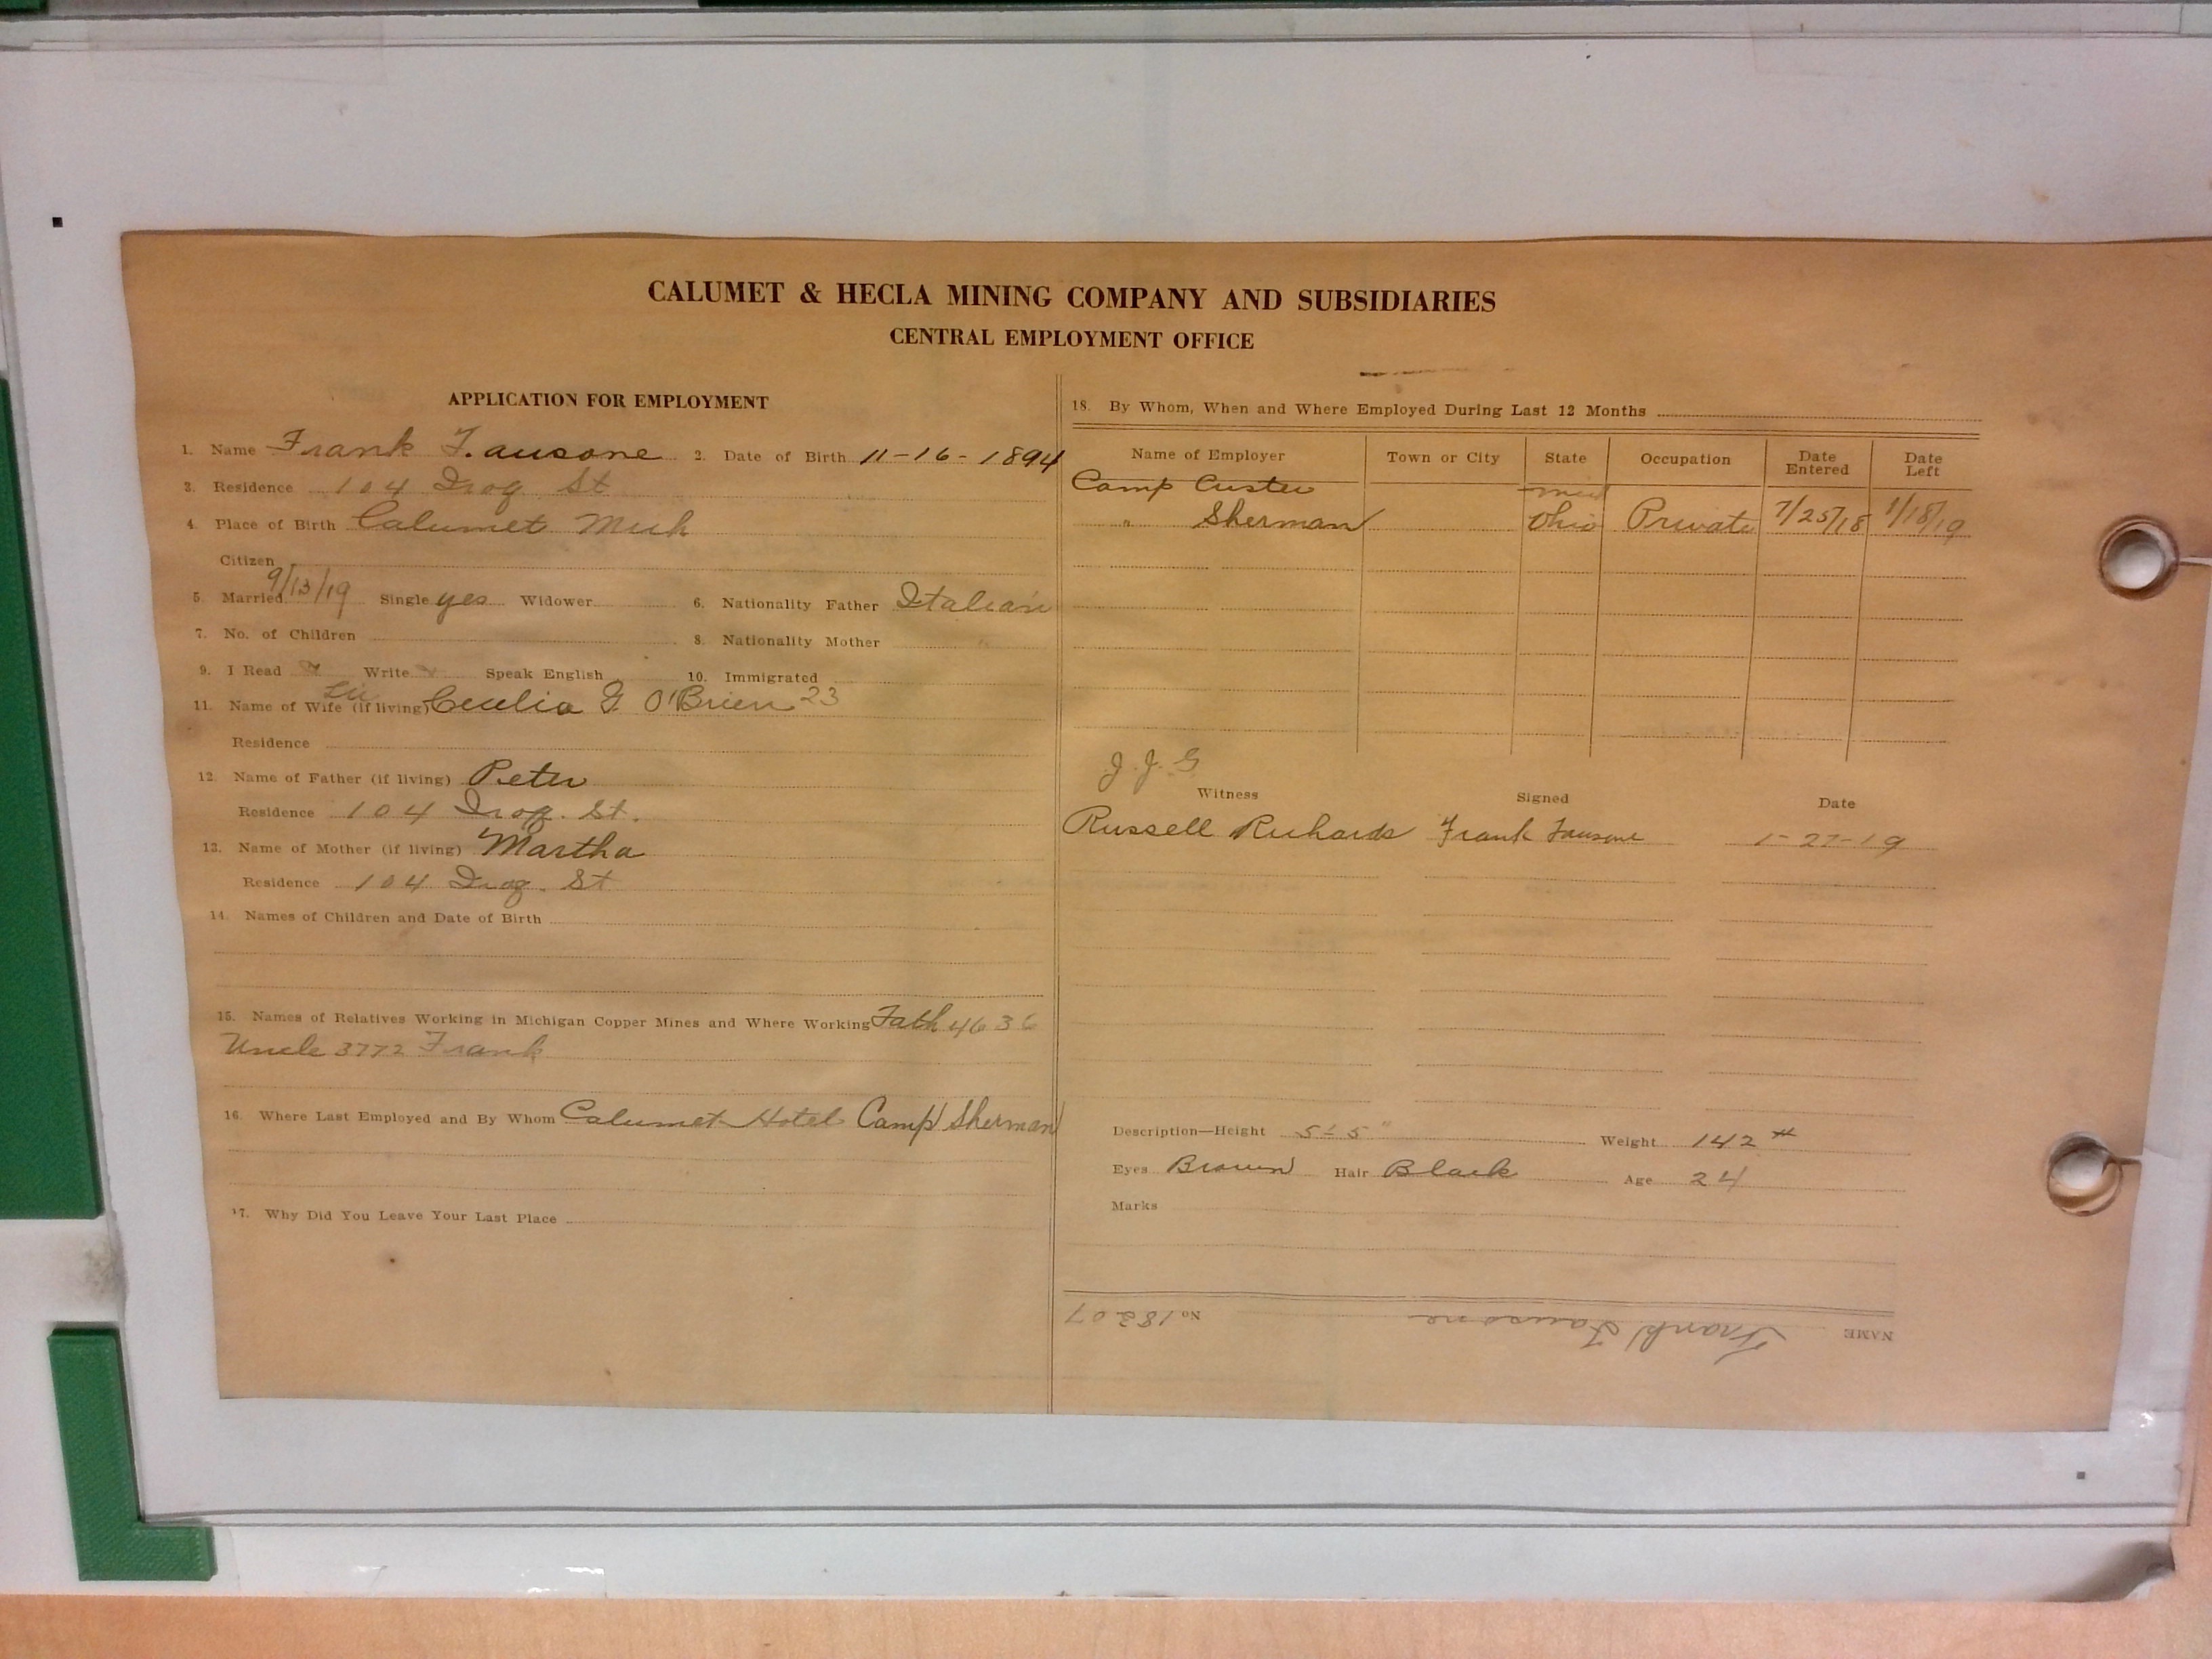 CALUMET & HECLA MINING COMPANY AND SUBSIDIARIES
CENTRAL EMPLOYMENT OFFICE
APPLICATION FOR EMPLOYMENT
1. Name Frank Fausone 2. Date of Birth 11-16-1894
3. Residence 104 Iroq St
4. Place of Birth Calumet Mich
Citizen
5. Married 9/13/19 Single yes Widower 6. Nationality Father Italian
7. No. of Children 8. Nationality Mother "
9. I Read Write Speak English 10. Immigrated
11. Name of Wife (if living) Cecelia G. O'Brien 23
Residence
12. Name of Father (if living) Peter
Residence 104 Iroq. St.
13. Name of Mother (if living) Martha
Residence 104 Iroq. St
14. Names of Children and Date of Birth
15. Names of Relatives Working in Michigan Copper Mines and Where Working Fath 4636
Uncle 3772 Frank
16. Where Last Employed and By Whom Calumet Hotel Camp Sherman
17. Why Did You Leave Your Last Place
18. By Whom, When and Where Employed During Last 12 Months
Name of Employer Town or City State Occupation Date Entered Date Left
Camp Custer Mich
" Sherman Ohio Private 7/25/18 1/18/19
J. J. G
Witness Signed Date
Russell Richards Frank Fausone 1-27-19
Description—Height 5' 5" Weight 142 #
Eyes Brown Hair Black Age 24
Marks
NAME Frank Fausone No 18207